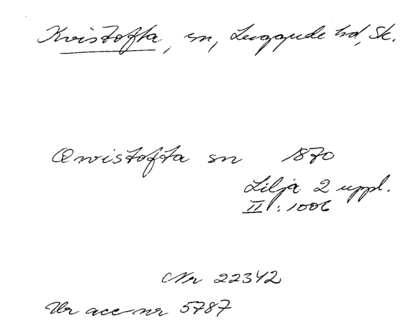 Kvistofta, sn, Luggude hd, Sk.
Qvistofta sn 1870
Lilja 2 uppl.
II : 1006
Nr 22342
Ur acc nr 5787